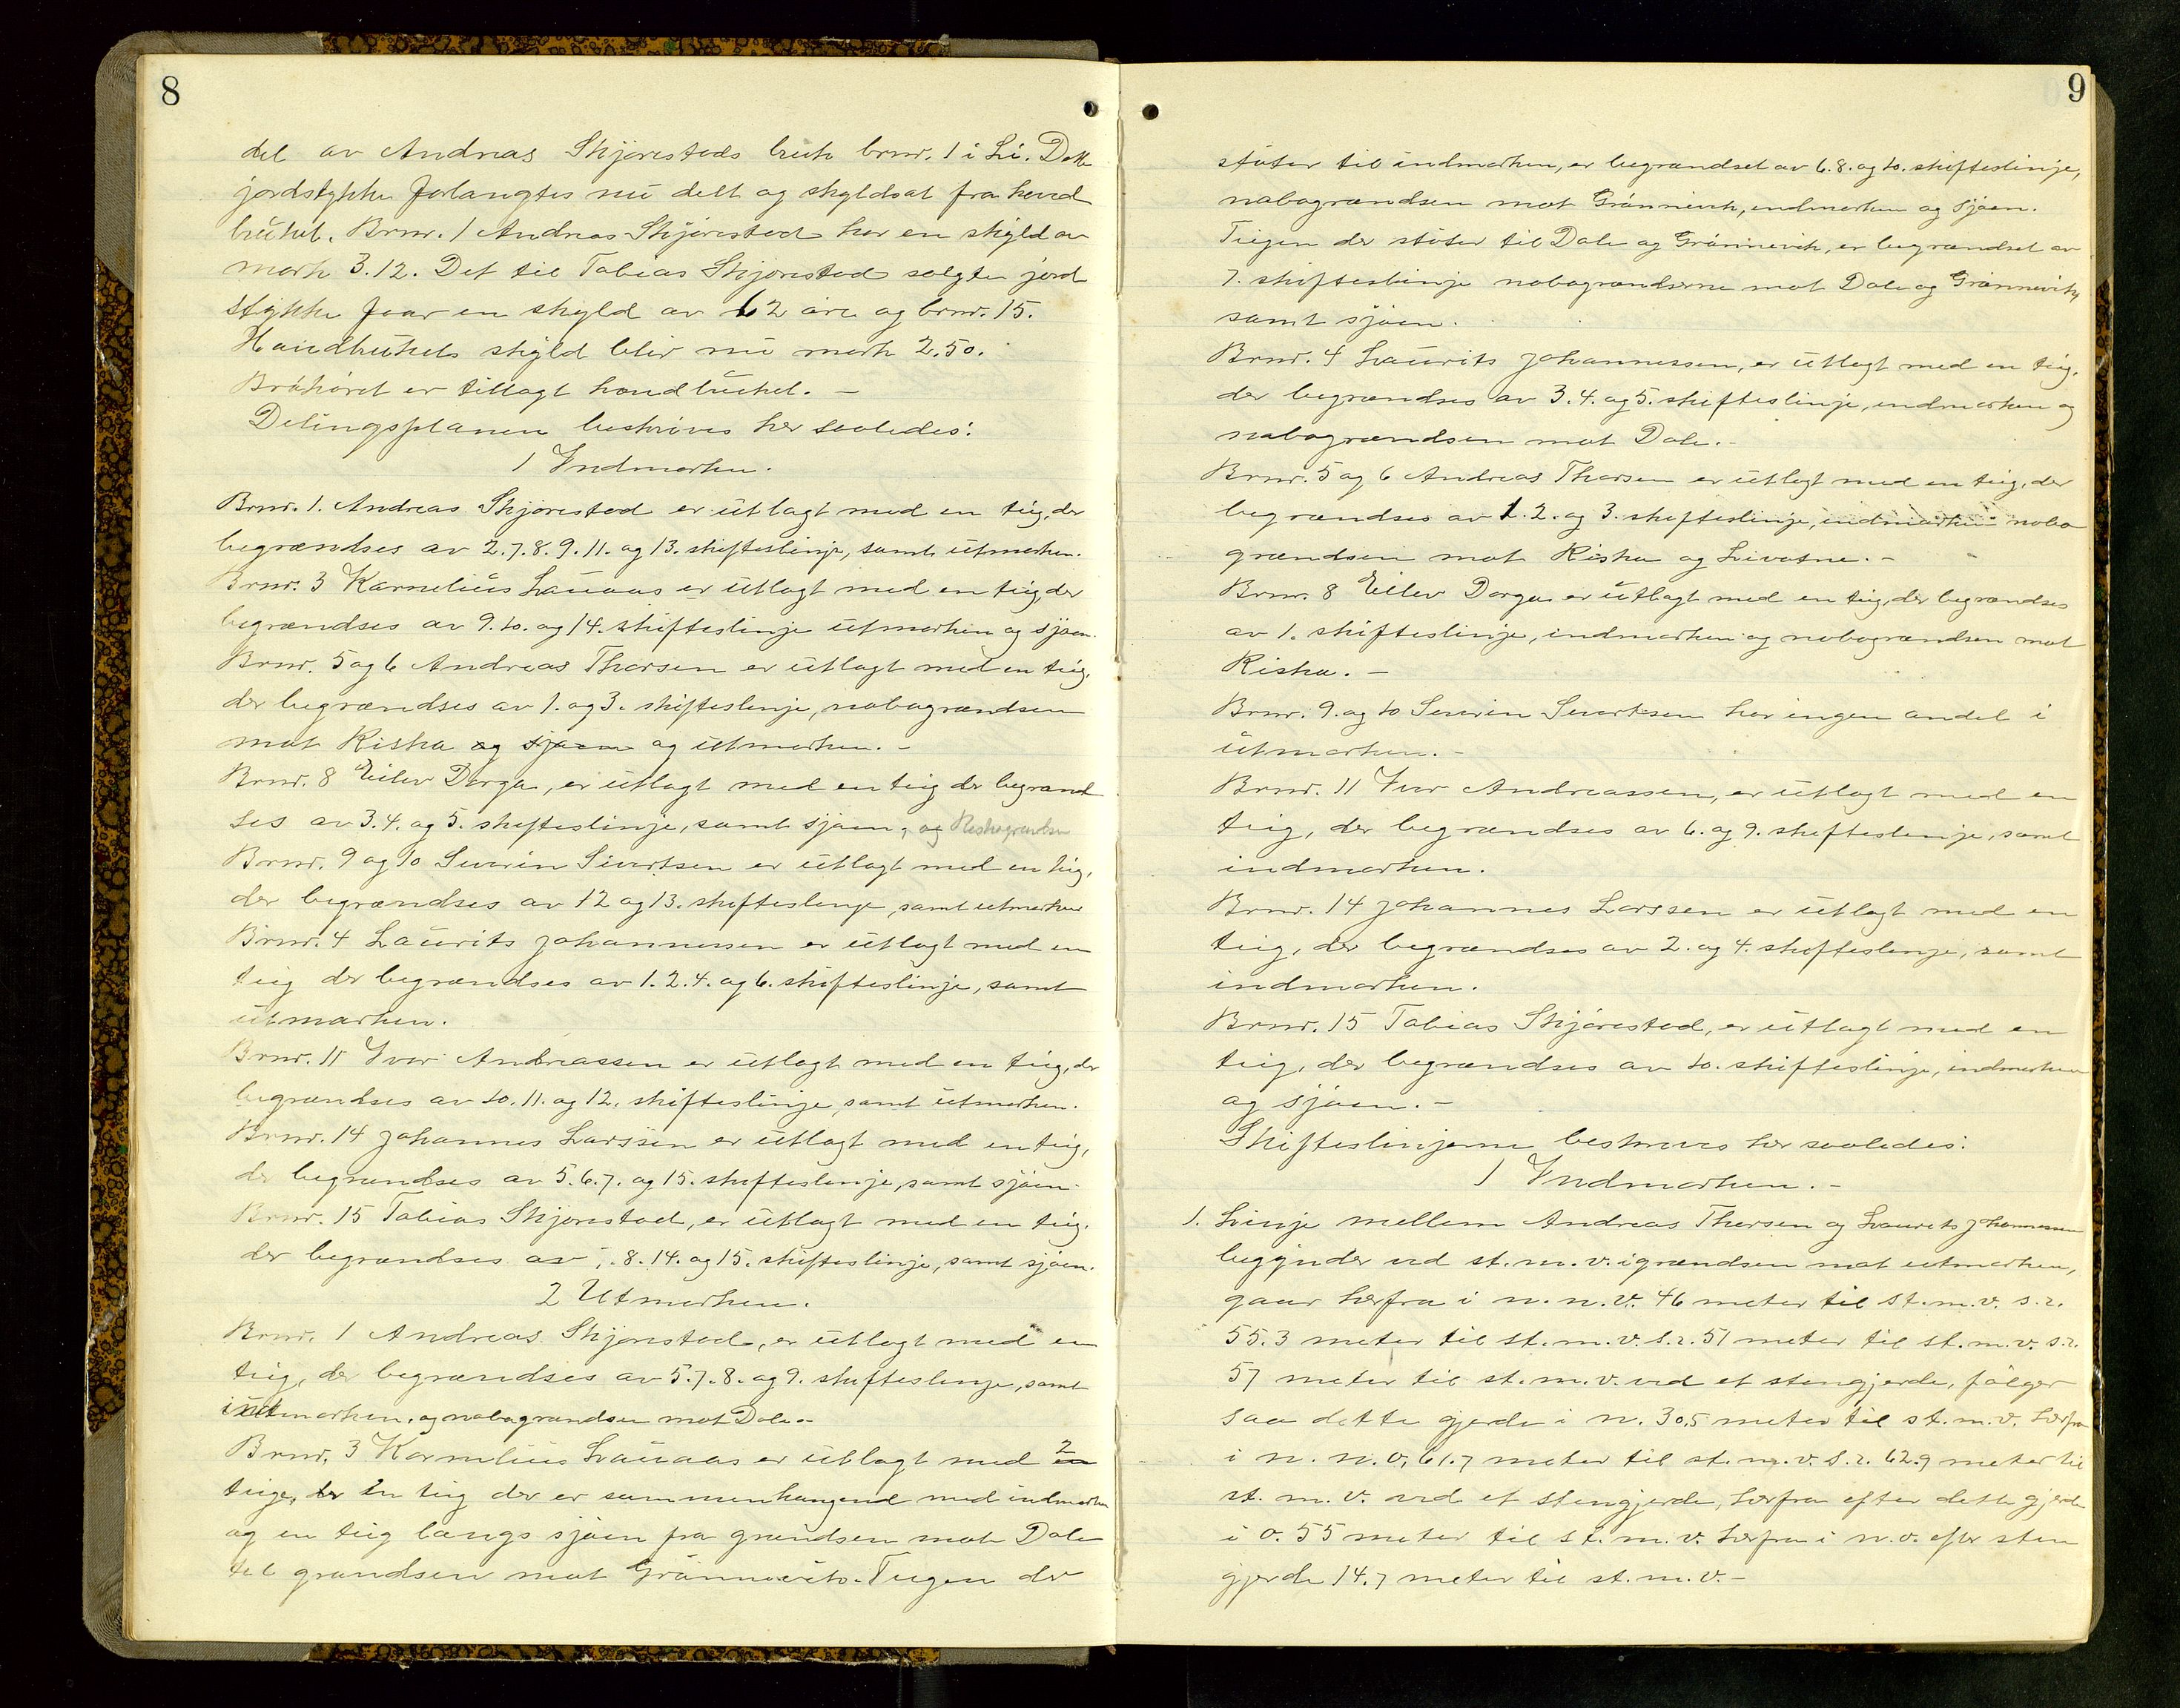 8
del av Andreas Skjørestads bruk brnr. 1 i Li. Dette
jordstykke forlangtes nu delt og skyldsat fra hoved
bruket. Brnr. 1 Andreas Skjørestad har en skyld av
mark 3.12. Det til Tobias Skjørestad solgte jord
stykke faar en skyld av 62 øre og brnr. 15.
Hovedbrukets skyld blir nu mark 2.50.
er tillagt hovedbruket. –
Delingsplanen beskrives her saaledes:
1 Indmarken.
Brnr. 1. Andreas Skjørestad er utlagt med en teig, der
begrændses av 2. 7. 8. 9. 11. og 13. skifteslinje, samt utmarken.
Brnr. 3 Kornelius Lauaas er utlagt med en teig, der
begrændses av 9. 10. og 14. skifteslinje utmarken og sjøen.
Brnr. 5 og 6 Andreas Thorsen er utlagt med en teig,
der begrændses av 1. og 3. skifteslinje, nabogrændsen
mot Riska og sjøen og utmarken. –
Brnr. 8 Eilev Dorga, er utlagt med en teig der begrænd
ses av 3. 4. og 5. skifteslinje, samt sjøen, og Riskagrændsen
Brnr. 9 og 10 Severin Sivertsen er utlagt med en teig,
der begrændses av 12 og 13. skifteslinje, samt utmarken
Brnr. 4 Laurits Johannessen er utlagt med en
teig der begrændses av 1. 2. 4. og 6. skifteslinje, samt
utmarken.
Brnr. 11 Ivar Andreassen er utlagt med en teig, der
begrændses av 10. 11. og 12. skifteslinje, samt utmarken.
Brnr. 14 Johannes Larssen er utlagt med en teig,
der begrændses av 5. 6. 7. og 15. skifteslinje, samt sjøen.
Brnr. 15 Tobias Skjørestad, er utlagt med en teig,
der begrændses av 8. 14. og 15. skifteslinje, samt sjøen.
2 Utmarken.
Brnr. 1 Andreas Skjørestad, er utlagt med en
teig, der begrændses av 5. 7. 8. og 9. skifteslinje, samt
indmarken, og nabogrændsen mot Dale. –
Brnr. 3 Kornelius Lauaas er utlagt med 2
teige, en teig der er sammenhængend med indmarken
og en teig langs sjøen fra grændsen mot Dale
til grændsen mot Grønnevik. Teigen der
9
støter til indmarken, er begrændset av 6. 8. og 10. skifteslinje,
nabogrændsen mot Grønnevik, indmarken og sjøen.
Teigen der støter til Dale og Grønnevik, er begrændset av
7. skifteslinje nabogrændserne mot Dale og Grønnevik,
samt sjøen.
Brnr. 4 Laurits Johannessen, er utlagt med en teig,
der begrændses av 3. 4. og 5. skifteslinje, indmarken og
nabogrændsen mot Dale. –
Brnr. 5 og 6 Andreas Thorsen er utlagt med en teig, der
begrændses av 1. 2. og 3. skifteslinje, indmarken nabo
grændsen mot Riska og Livatne. –
Brnr. 8 Eilev Dorga er utlagt med en teig, der begrændses
av 1. skifteslinje, indmarken og nabogrændsen mot
Riska. –
Brnr. 9. og 10 Severin Sivertsen har ingen andel i
utmarken. –
Brnr. 11 Ivar Andreassen, er utlagt med en
teig, der begrændses av 6. og 9. skifteslinje, samt
indmarken.
Brnr. 14 Johannes Larssen er utlagt med en
teig, der begrændses av 2. og 4. skifteslinje, samt
indmarken.
Brnr. 15 Tobias Skjørestad, er utlagt med en
teig, der begrændses av 10. skifteslinje, indmarken
og sjøen. –
Skifteslinjerne beskrives her saaledes:
1 Indmarken. –
1. Linje mellem Andreas Thorsen og Laurits Johannessen
begynder ved st. m. v. i grændsen mot utmarken,
gaar herfra i n. n. v. 46 meter til st. m. v. s. r.
55.3 meter til st. m. v. s. r. 51 meter til st. m. v. s. r.
57 meter til st. m. v. ved et stengjerde, følger
saa dette gjerde i n. 30,5 meter til st. m. v. herfra
i n. n. o. 61.7 meter til st. m. v. s. r. 62.9 meter til
st. m. v. ved et stengjerde, herfra efter dette gjerde
i o. 55 meter til st. m. v. herfra i n. o. efter sten
gjerde 14.7 meter til st. m. v. –